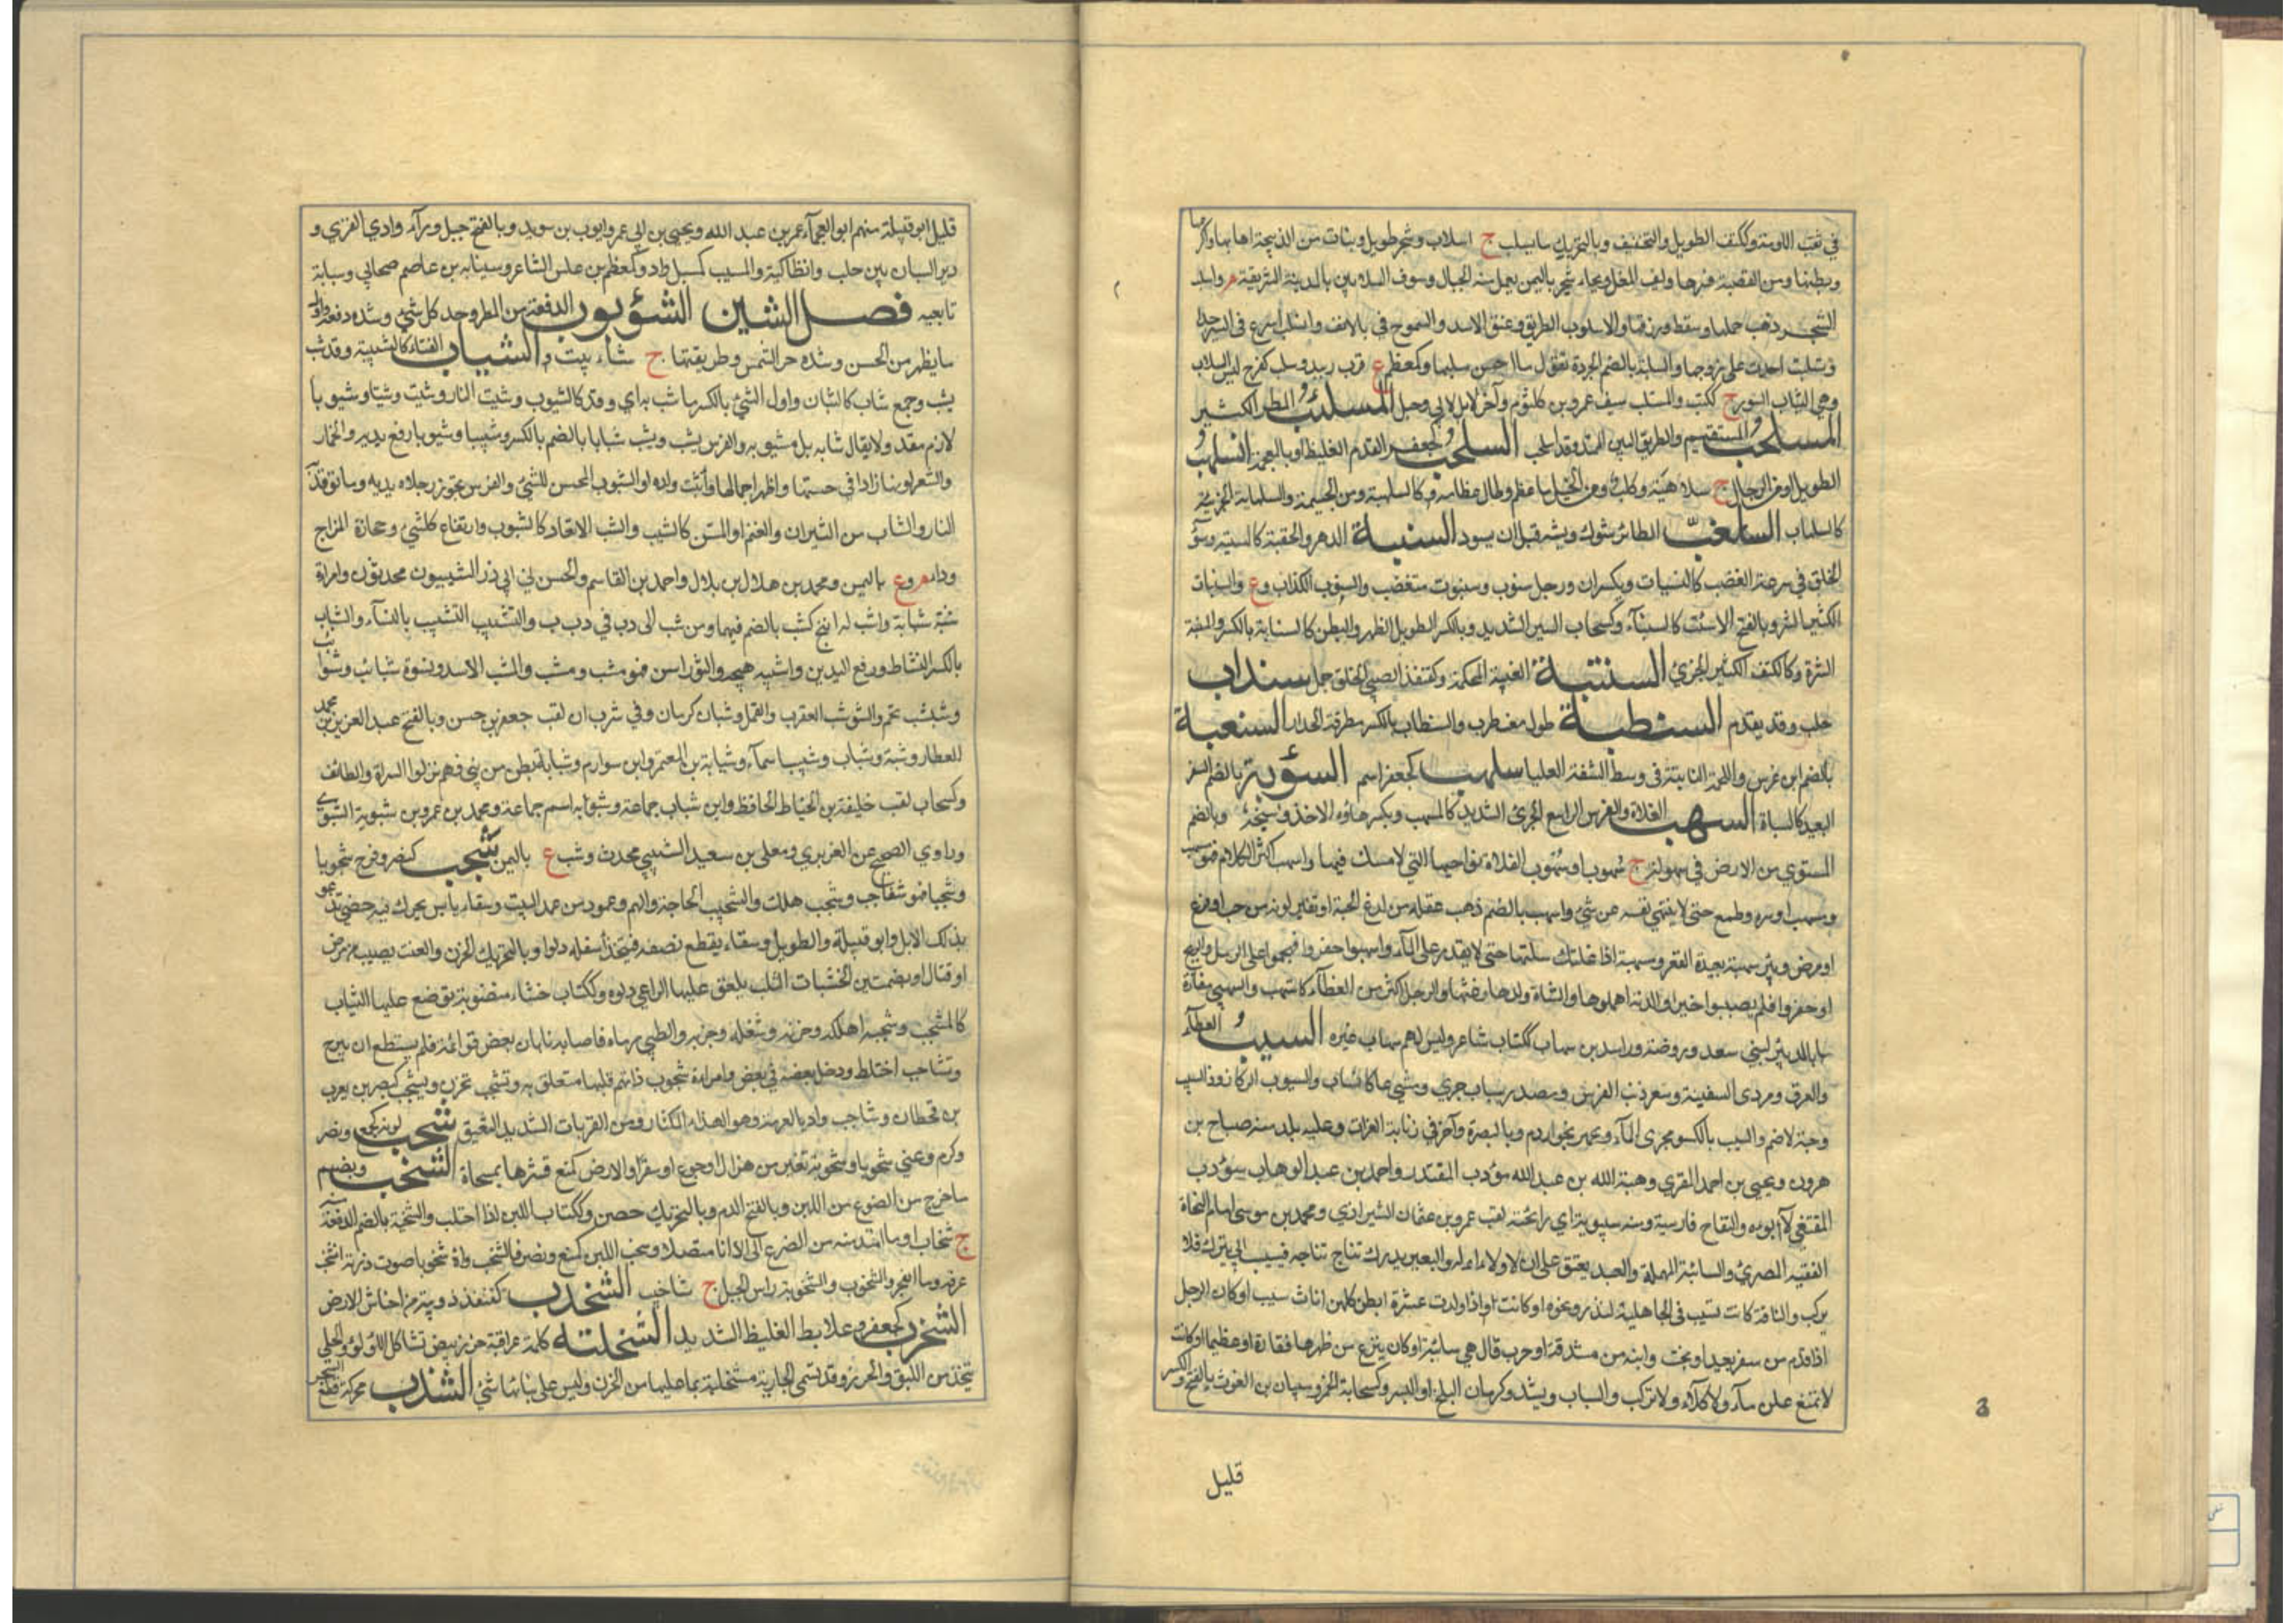 في ثقب اللؤمة وككتف الطويل والخفيف وبالتحريك ما يسلب ج اسلاب وشجر طويل ونبات ومن الذبيحة اهابها واكرعها
وبطنها ومن القصبة قشرها وليف المقل ولحاء شجر باليمن يعمل منه الحبال وسوق السلابين بالمدينة الشريفة م واسلب
الشجر ذهب حملها وسقط ورقها والاسلوب الطريق وعنق الاسد والشموخ في الانف وانسلب اسرع في السير جدا
وتسلبت احدت على زوجها والسلبة بالضم الجردة تقول ما احسن سلبها وكمعظم ع قرب زبيد وسلب كفرح لبس السلاب
وهي الثياب السود ج ككتب والمستلب سيف عمرو بن كلثوم وآخر لابي دهبل المسلئب المطر الكثير
المسلحب المستقيم والطريق البين الممتد وقد اسلحب السلخب كجعفر القدم الغليظ او بالعجمة السلهب
الطويل او من الرجال ج سلاهبة وكلب ومن الخيل ما عظم وطال عظامه كالسلهبة ومن الجسيمة والسلهابة الجريئة
كالسلهاب السلغب الطائر شوك ريشه قبل ان يسود السنبة الدهر والحقبة كالسنبتة وسوء
الخلق في سرعة الغضب كالسنبات ويكسران ورجل سنوب وسنبوت متغضب والسنوب الكذاب وع والسنبات
الكثير الشر وبالفتح الاست كالسنباء وكسحاب السير الشديد وبالكسر الطويل الظهر والبطن كالسنابة بالكسر والسنبة
الشرة وكالكتف الكثير الجري السنتبة الغيبة المحكمة وكقنفذ السيئ الخلق جمل سنداب
صلب وقد يقدم السنطبة طول مضطرب والسنطاب بالكسر مطرقة الحداد السنعبة
بالضم ابن عرس واللحمة الناتئة في وسط الشفة العليا سلهب كجعفر اسم السؤبة بالضم السفر
البعيد كالسبأة السهب الفلاة والفرس الواسع الجري الشديد كالمسهب ويكسر هاؤه الاخذ وسبخة وبالضم
المستوي من الارض في سهولة ج سهوب او سهوب الفلاة نواحيها التي لا مسلك فيها واسهب اكثر الكلام فهو مسهب
ومسهب او شره وطمع حتى لا ينتهي نفسه عن شيء واسهب بالضم ذهب عقله من لدغ الحية او تغير لونه من حب او فزع
او مرض وبئر سهبة بعيدة القعر ومسهبة اذا غلبتك سهلتها حتى لا يقدر على الماء واسهبوا حفروا فهجموا على الرمل والريح
او حفروا فلم يصيبوا خيرا والدابة اهملوها والشاة ولدها رغثها والرجل اكثر من العطاء كاستهب والسهبى مفازة
بالد بئر لبني سعد وروضة وراشد بن سهاب ككتاب شاعر وليس لهم سهاب غيره السيب العطاء
والعرف ومردى السفينة وشعر ذنب الفرس ومصدر ساب جرى ومشى مسرعا كانساب والسيوب الركاز وذات السيب
رحبة لاضم والسيب بالكسر مجرى الماء ونهر بخوارزم وبالبصرة وآخر في ذنابة الفرات وعليه بلد منه صباح بن
هرون ويحيى بن احمد المقري وهبة الله بن عبد الله مؤدب المقتدر واحمد بن عبد الوهاب مؤدب
المقتفي لا ابوه والتفاح فارسية ومنه سيبويه اي رائحته لقب عمرو بن عثمان الشيرازي ومحمد بن موسى امام النحاة
الفقيه المصري والسائبة المهملة والعبد يعتق على ان لا ولاء له والبعير يدرك نتاج نتاجه فيسيب اي يترك فلا
يركب والناقة كانت تسيب في الجاهلية لنذر ونحوه او كانت اذا ولدت عشرة ابطن كلهن اناث سيبت او كان الرجل
اذا قدم من سفر بعيد او نجت دابته من مشقة او حرب قال هي سائبة او كان ينزع من ظهرها فقارة او عظيما وكانت
لا تمنع عن ماء ولا كلاء ولا تركب والسياب ويشدد وكرمان البلح او البسر وكسحابة الخمر وسيبان بن الغوث بالفتح والكسر
قليل
قليل ابو قبيلة منهم ابو العجماء عمر بن عبد الله ويحيى بن ابي عمرو ايوب بن سويد وبالفتح جبل وراء وادي القرى و
دير السبان بين حلب وانطاكية والمسيب كسيل واد وكمعظم بن علس الشاعر وسيابة بن عاصم صحابي وسيابة
تابعية فصل الشين الشؤبوب الدفعة من المطر وحد كل شيء وشدة دفعة واول
ما يظهر من الحسن وشدة حر الشمس وطريقتها ج شآبيب والشباب الفتاء كالشبيبة وقد شب
يشب وجمع شاب كالشبان واول الشيء بالكسر ما شب به اي وقد كالشبوب وشبت النار وشبت وشبا وشبوبا
لازم متعد ولا يقال شابة بل مشبوبة والفرس يشب ويشب شبابا بالضم بالكسر وشبيبا وشبوبا رفع يديه والخمار
والشعر لونها زادا في حسنها واظهرا جمالها واشب ولده له والشبوب المحسن للشيء والفرس تجوز رجلاه يديه وما توقد
النار والشاب من الثيران والغنم او المسن كالشبب والشب الايقاد كالشبوب وارتفاع كل شيء وحجارة الزاج
وداء م وع باليمن ومحمد بن هلال بن بلال واحمد بن القاسم والحسن بن ابي ذر الشبيون محدثون وامراة
شبة شابة واشب له اتيح كشب بالضم فيهما ومن شب الى دب في دب ب والتشبب التشبيب بالنساء والشباب
بالكسر النشاط ورفع اليدين واشببه هيجه والثور اسن فهو مشب ومشب والمشب الاسد ونسوة شبائب وشواب
وشبشب تمم والشوشب العقرب والقمل وشبان كرمان وفي شرب ان لقب جعفر بن حسن وبالفتح عبد العزيز بن محمد
العطار وشبة وشباب وشبيب اسماء وشبابة بن المعتمر وابن سوار م وشبابة بطن من بني فهم نزلوا السراة والطائف
وكسحاب لقب خليفة بن الخياط الحافظ وابن شباب جماعة وشبوبة اسم جماعة ومحمد بن عمر بن شبوية الشبوي
وراوي الصحيح عن الفربري ومعلى بن سعيد الشبيبي محدث وشب ع باليمن شجب كنصر وفرح شجوبا
وشجبا فهو شاجب وشجب هلك والشجب الحاجة والهم وعمود من عمد البيت وسقاء يابس يحرك فيه حصى تذعر
بذلك الابل وابو قبيلة والطويل وسقاء يقطع نصفه فيتخذ اسفله دلوا وبالتحريك الحزن والعنت يصيب من مرض
او قتال او بضمتين الخشبات الثلث يعلق عليها الراعي دلوه وككتاب خشبات منصوبة توضع عليها الثياب
كالمشجب وشجبه اهلكه وحزنه وشغله وجذبه والظبي رماه فاصابه بابان بعض قوائمه فلم يستطع ان يبرح
وتشاجب اختلط ودخل بعضه في بعض وامراة شجوب ذات هم قلبها متعلق به وتشجب تحزن ويشجب كينصر بن يعرب
بن قحطان وشاجب واد بالعرمة وهو الهذاء المكثار ومن الغربان الشديد النغيق شحب لونه كجمع ونصر
وكرم وعني شحوبا وشحوبة تغير من هزال او جوع او سفر والارض كمنع قشرها بمسحاة الشخب ويضم
ما خرج من الضرع من اللبن وبالفتح الدم وبالتحريك حصن وككتاب اللبن اذا احتلب والشخبة بالضم الدفعة
ج شخاب او ما امتد منه من الضرع الى الاناء متصلا وشخب اللبن كمنع ونصر فانشخب واشخوبا صوت درته انشخب
عرقه دما انفجر والشخوب والشخوبة راس الجبل ج شناخيب الشخدب كقنفذ دويبة من احناش الارض
الشخزب كجعفر وعلابط الغليظ الشديد الشخلبة كلمة عراقية خرز بيض تشاكل اللؤلؤ والحلي
يتخذ من الليف والخرز وقد تسمى الجارية مشخلبة بما عليها من الخرز وليس على بنائها شيء الشذب محركة قطع الشجر